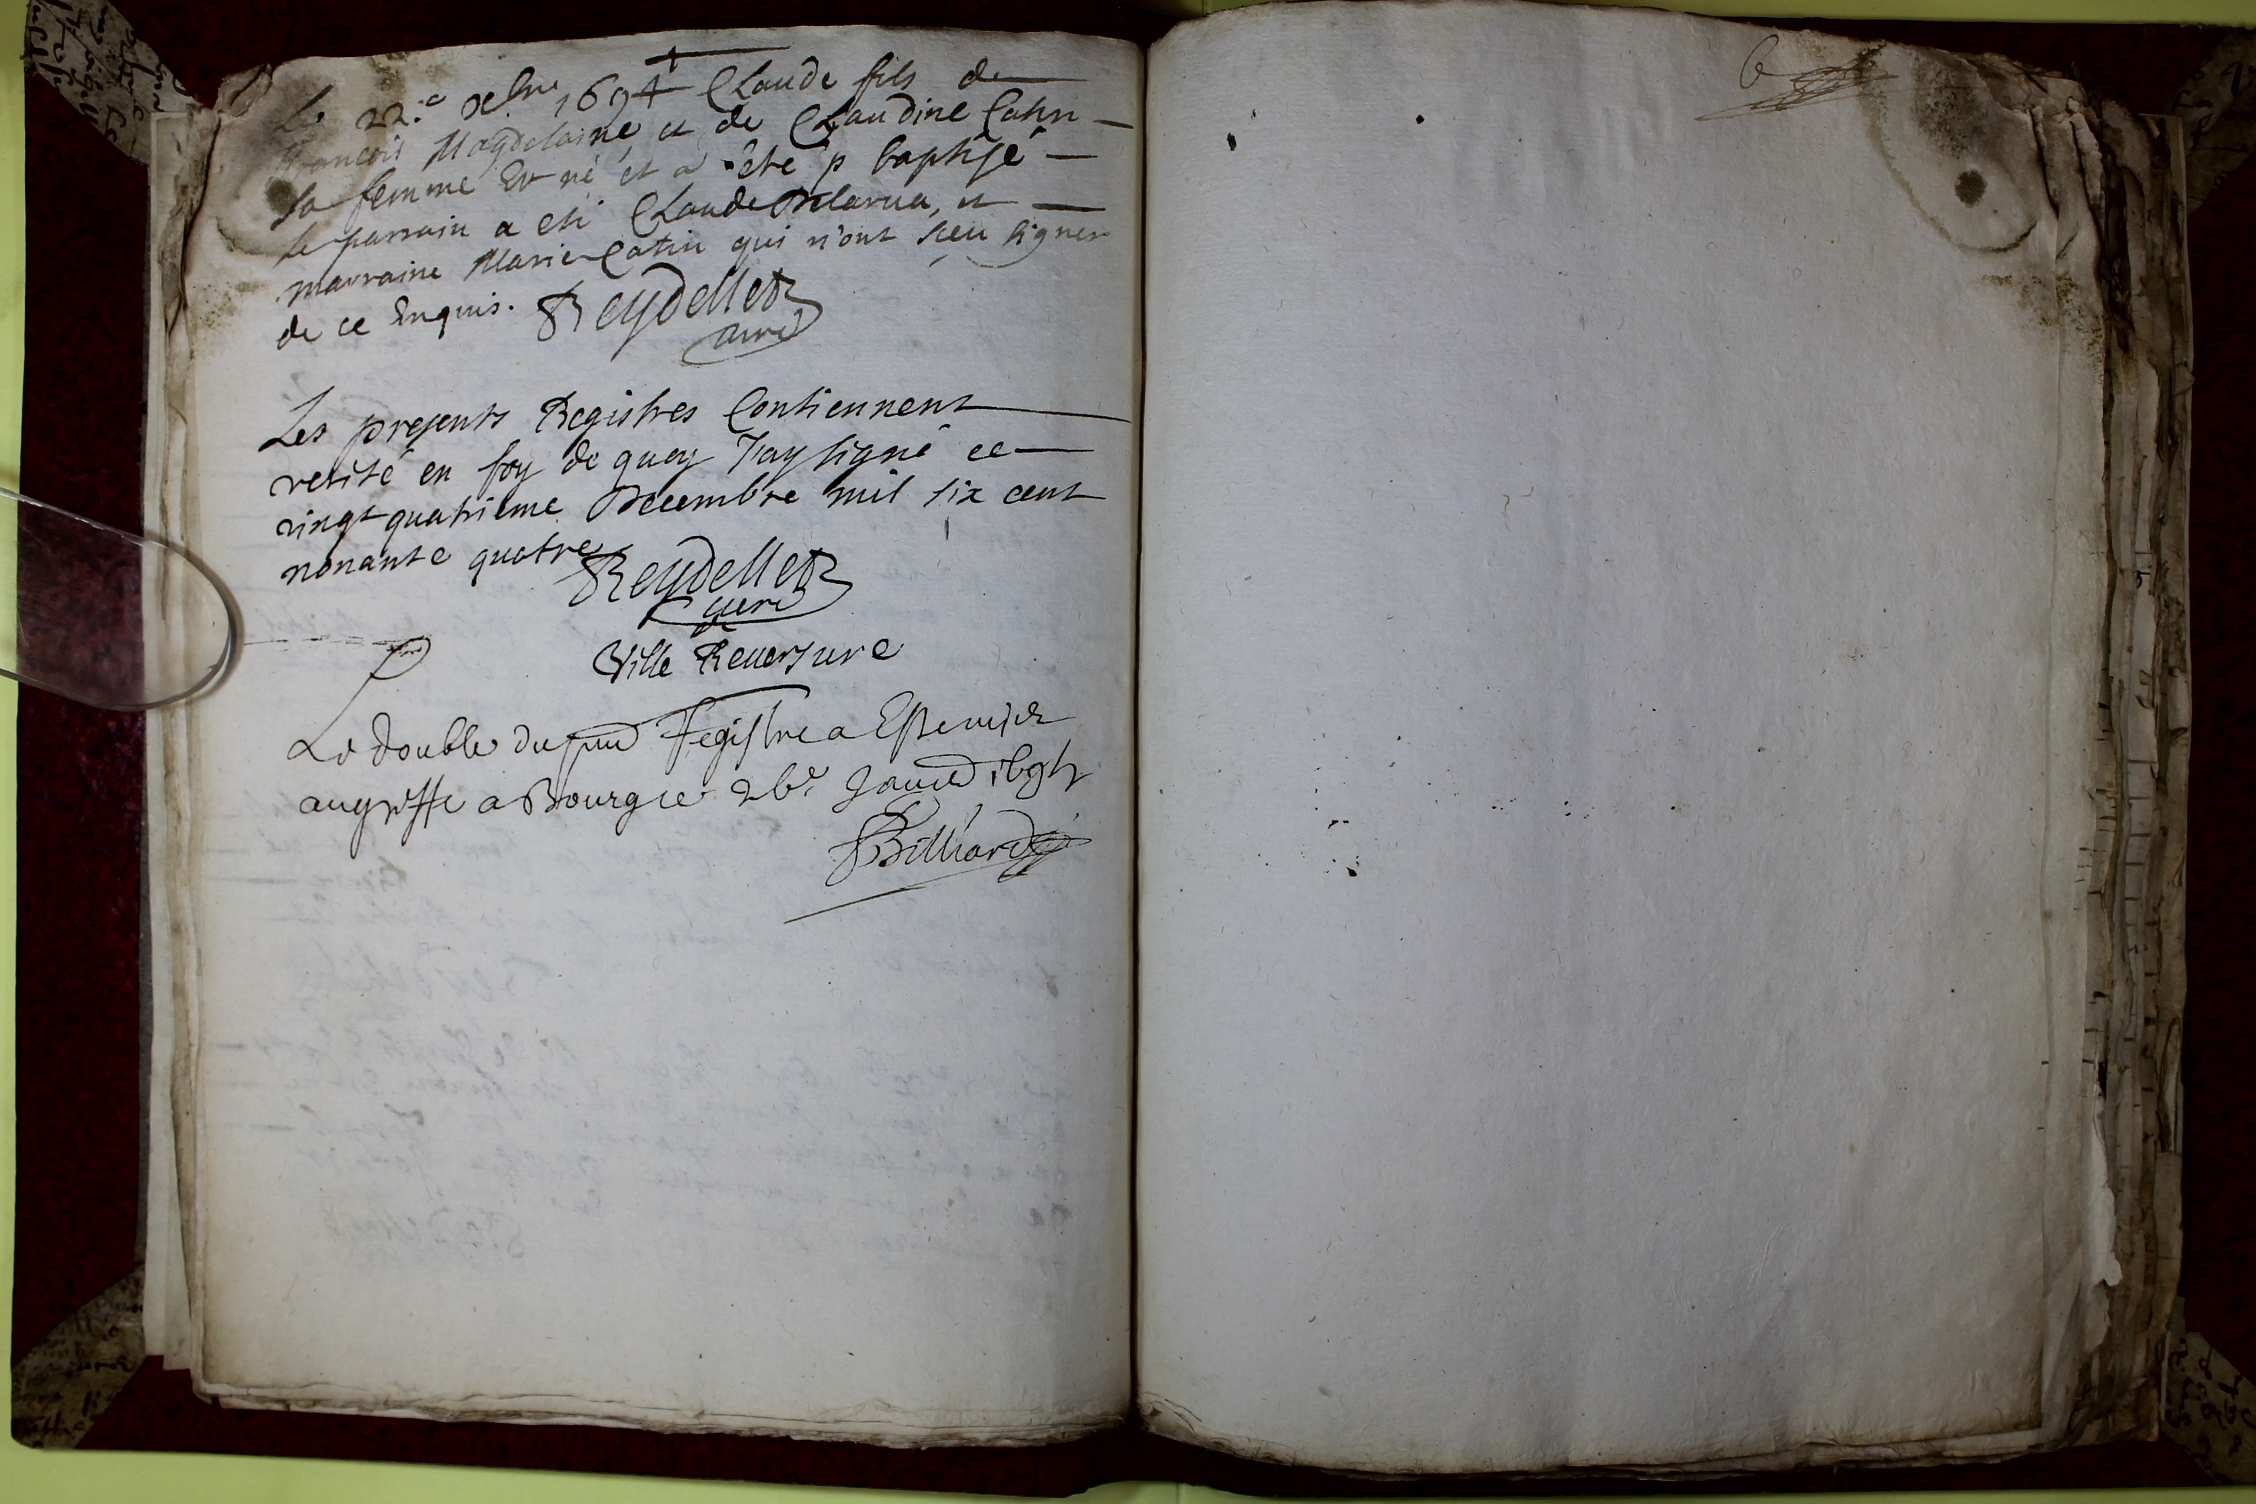 Le 22.e xbre 1694 Claude fils de
francois Magdelaine, et de Claudine Catin
sa femme Est né et a été p baptisé
le parrain a esté Claude Delarua, et
marraine Marie Catin qui n'ont sceu signer
de ce Enquis. Reydellet
curé
Les presents Registres Contiennent
verité en foy de quoy J'ay signé ce
vingt quatrieme Decembre mil six cent
nonante quatre Reydellet
curé
de
Ville Reuersure
Le double du pnt Registre a Este mis
au greffe a Bourg ce 26e Januier
Billiard
6